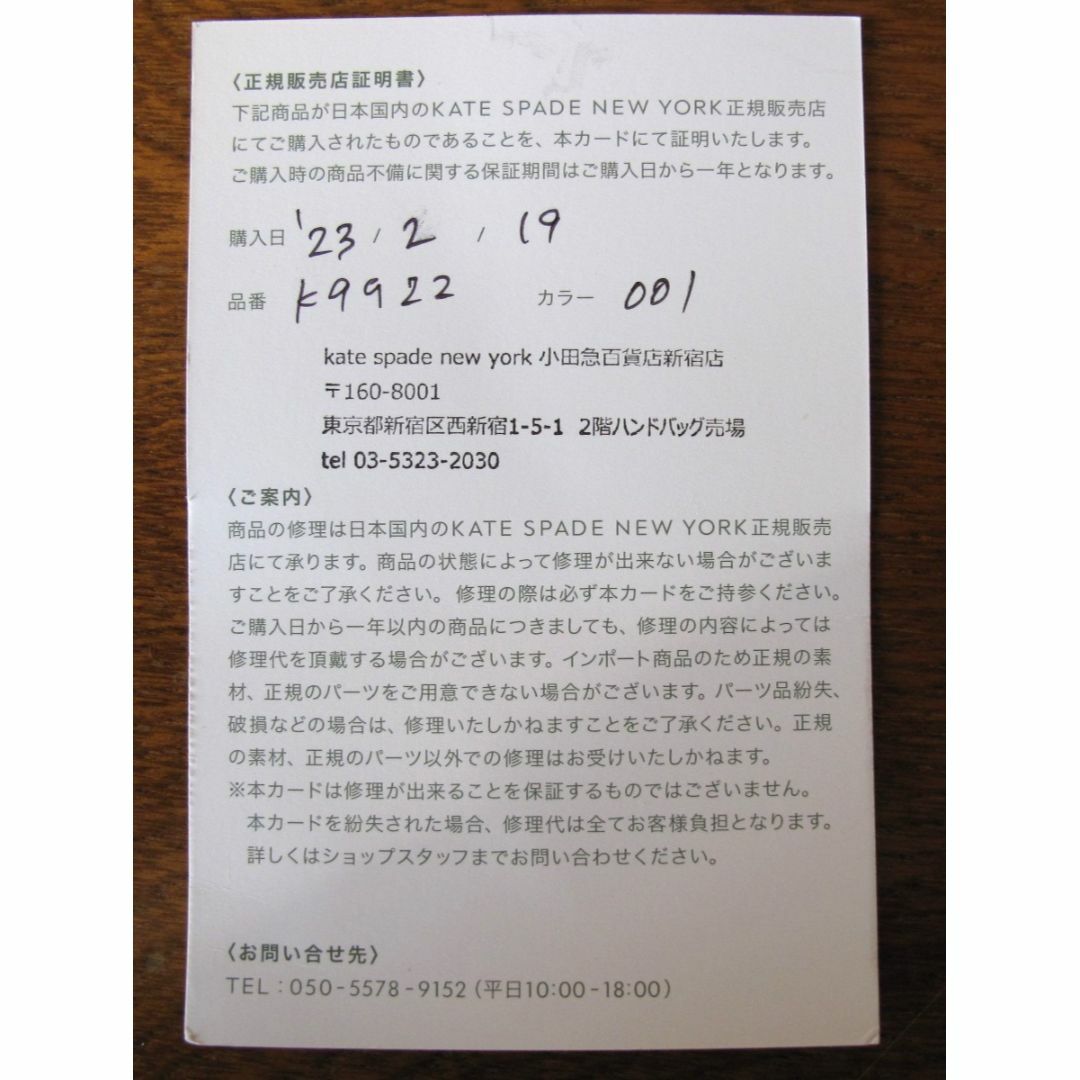 〈正規販売店証明書〉
下記商品が日本国内のKATE SPADE NEW YORK正規販売店
にてご購入されたものであることを、本カードにて証明いたします。
ご購入時の商品不備に関する保証期間はご購入日から一年となります。
購入日 '23 / 2 / 19
品番 K9922 カラー 001
kate spade new york 小田急百貨店新宿店
〒160-8001
東京都新宿区西新宿1-5-1 2階ハンドバッグ売場
tel 03-5323-2030
〈ご案内〉
商品の修理は日本国内のKATE SPADE NEW YORK正規販売
店にて承ります。商品の状態によって修理が出来ない場合がございま
すことをご了承ください。修理の際は必ず本カードをご持参ください。
ご購入日から一年以内の商品につきましても、修理の内容によっては
修理代を頂戴する場合がございます。インポート商品のため正規の素
材、正規のパーツをご用意できない場合がございます。パーツ品紛失、
破損などの場合は、修理いたしかねますことをご了承ください。正規
の素材、正規のパーツ以外での修理はお受けいたしかねます。
※本カードは修理が出来ることを保証するものではございません。
本カードを紛失された場合、修理代は全てお客様負担となります。
詳しくはショップスタッフまでお問い合わせください。
〈お問い合せ先〉
TEL：050-5578-9152（平日10:00-18:00）